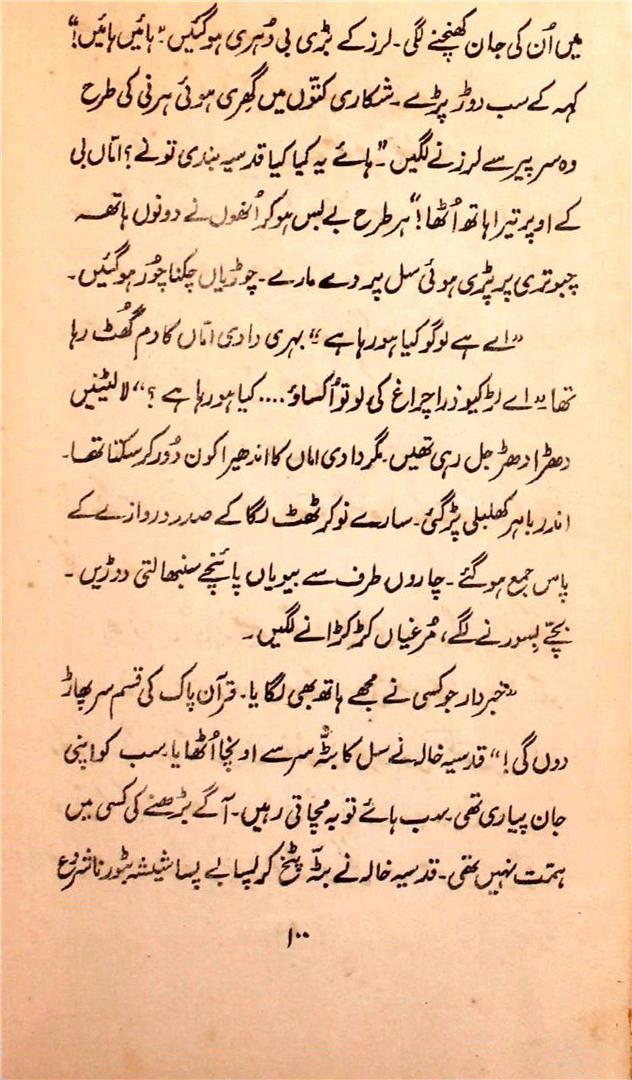 میں اُن کی جان کھنچنے لگی۔ لرز کے بڑی بی دُہری ہوگئیں۔ "ہائیں ہائیں!"
کہہ کے سب دوڑ پڑے۔ شکاری کتّوں میں گھِری ہوئی ہرنی کی طرح
وہ سر پیر سے لرزنے لگیں۔ "ہائے یہ کیا کیا قدسیہ بندی تونے؟ امّاں بی
کے اوپر تیرا ہاتھ اُٹھا!" ہر طرح بے بس ہوکر اُنھوں نے دونوں ہاتھ
چبوتری پر پڑی ہوئی سل پر دے مارے۔ چوڑیاں چکنا چُور ہوگئیں۔
"اے ہے لوگو کیا ہورہا ہے" بہری دادی امّاں کا دم گھُٹ رہا
تھا "اے لڑکیو ذرا چراغ کی لو تو اُکساؤ.... کیا ہورہا ہے؟" لالٹینیں
دھڑا دھڑ جل رہی تھیں۔ مگر دادی اماں کا اندھیرا کون دُور کرسکتا تھا۔
اندر باہر کھلبلی پڑگئی۔ سارے نوکر ٹھٹ لگا کے صدر دروازے کے
پاس جمع ہوگئے۔ چاروں طرف سے بیویاں پائنچے سنبھالتی دوڑیں۔
بچّے بسورنے لگے، مُرغیاں کڑکڑانے لگیں۔
"خبردار جو کسی نے مجھے ہاتھ بھی لگایا۔ قرآن پاک کی قسم سر پھاڑ
دوں گی!" قدسیہ خالہ نے سل کا بٹّہ سر سے اونچا اُٹھایا۔ سب کو اپنی
جان پیاری تھی۔ سب ہائے توبہ مچاتی رہیں۔ آگے بڑھنے کی کسی میں
ہمّت نہیں تھی۔ قدسیہ خالہ نے بٹّہ پٹخ کر لپسا بے پسا شیشہ بٹورنا شروع
۱۰۰